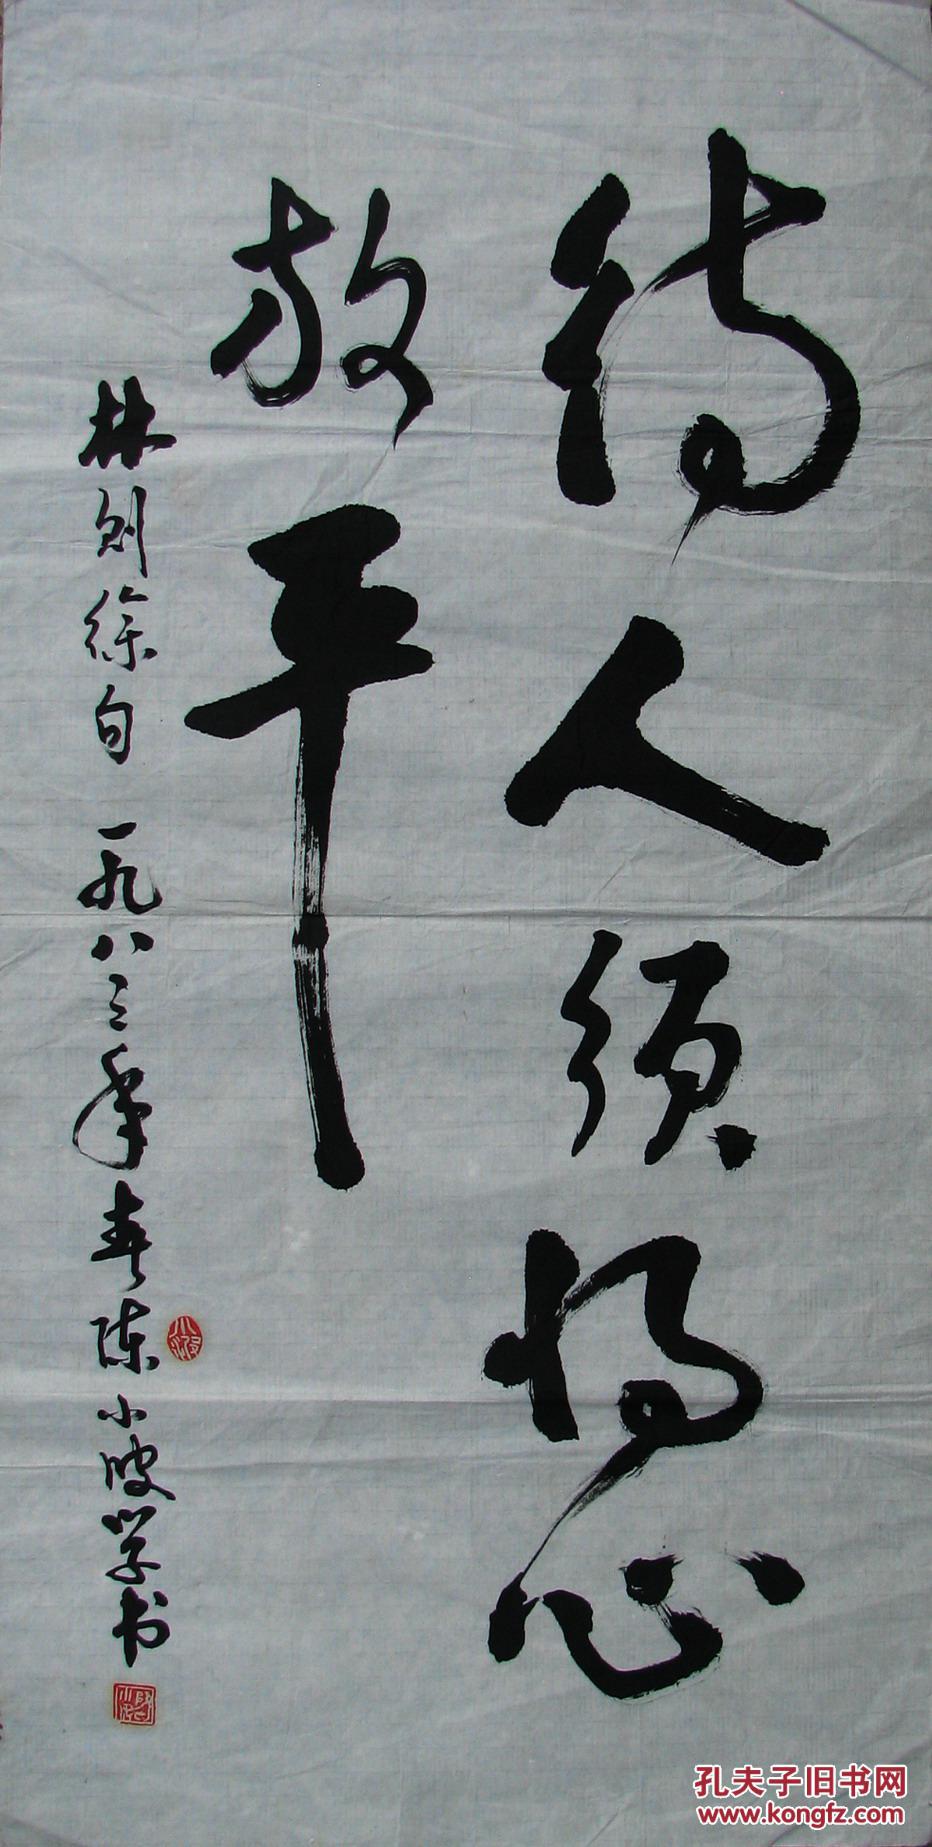 待人须将心
放平
林则徐句 一九八三年春 陈小陂学书
孔夫子旧书网
www.kongfz.com